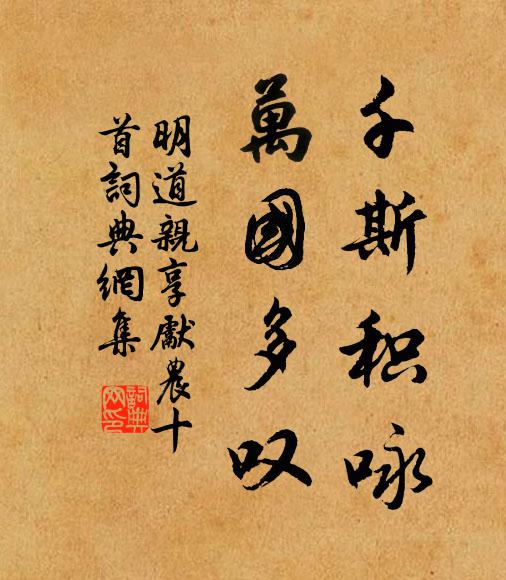 千斯积咏
萬國多叹
明道親享獻農十
首詞典網集
詞典网印